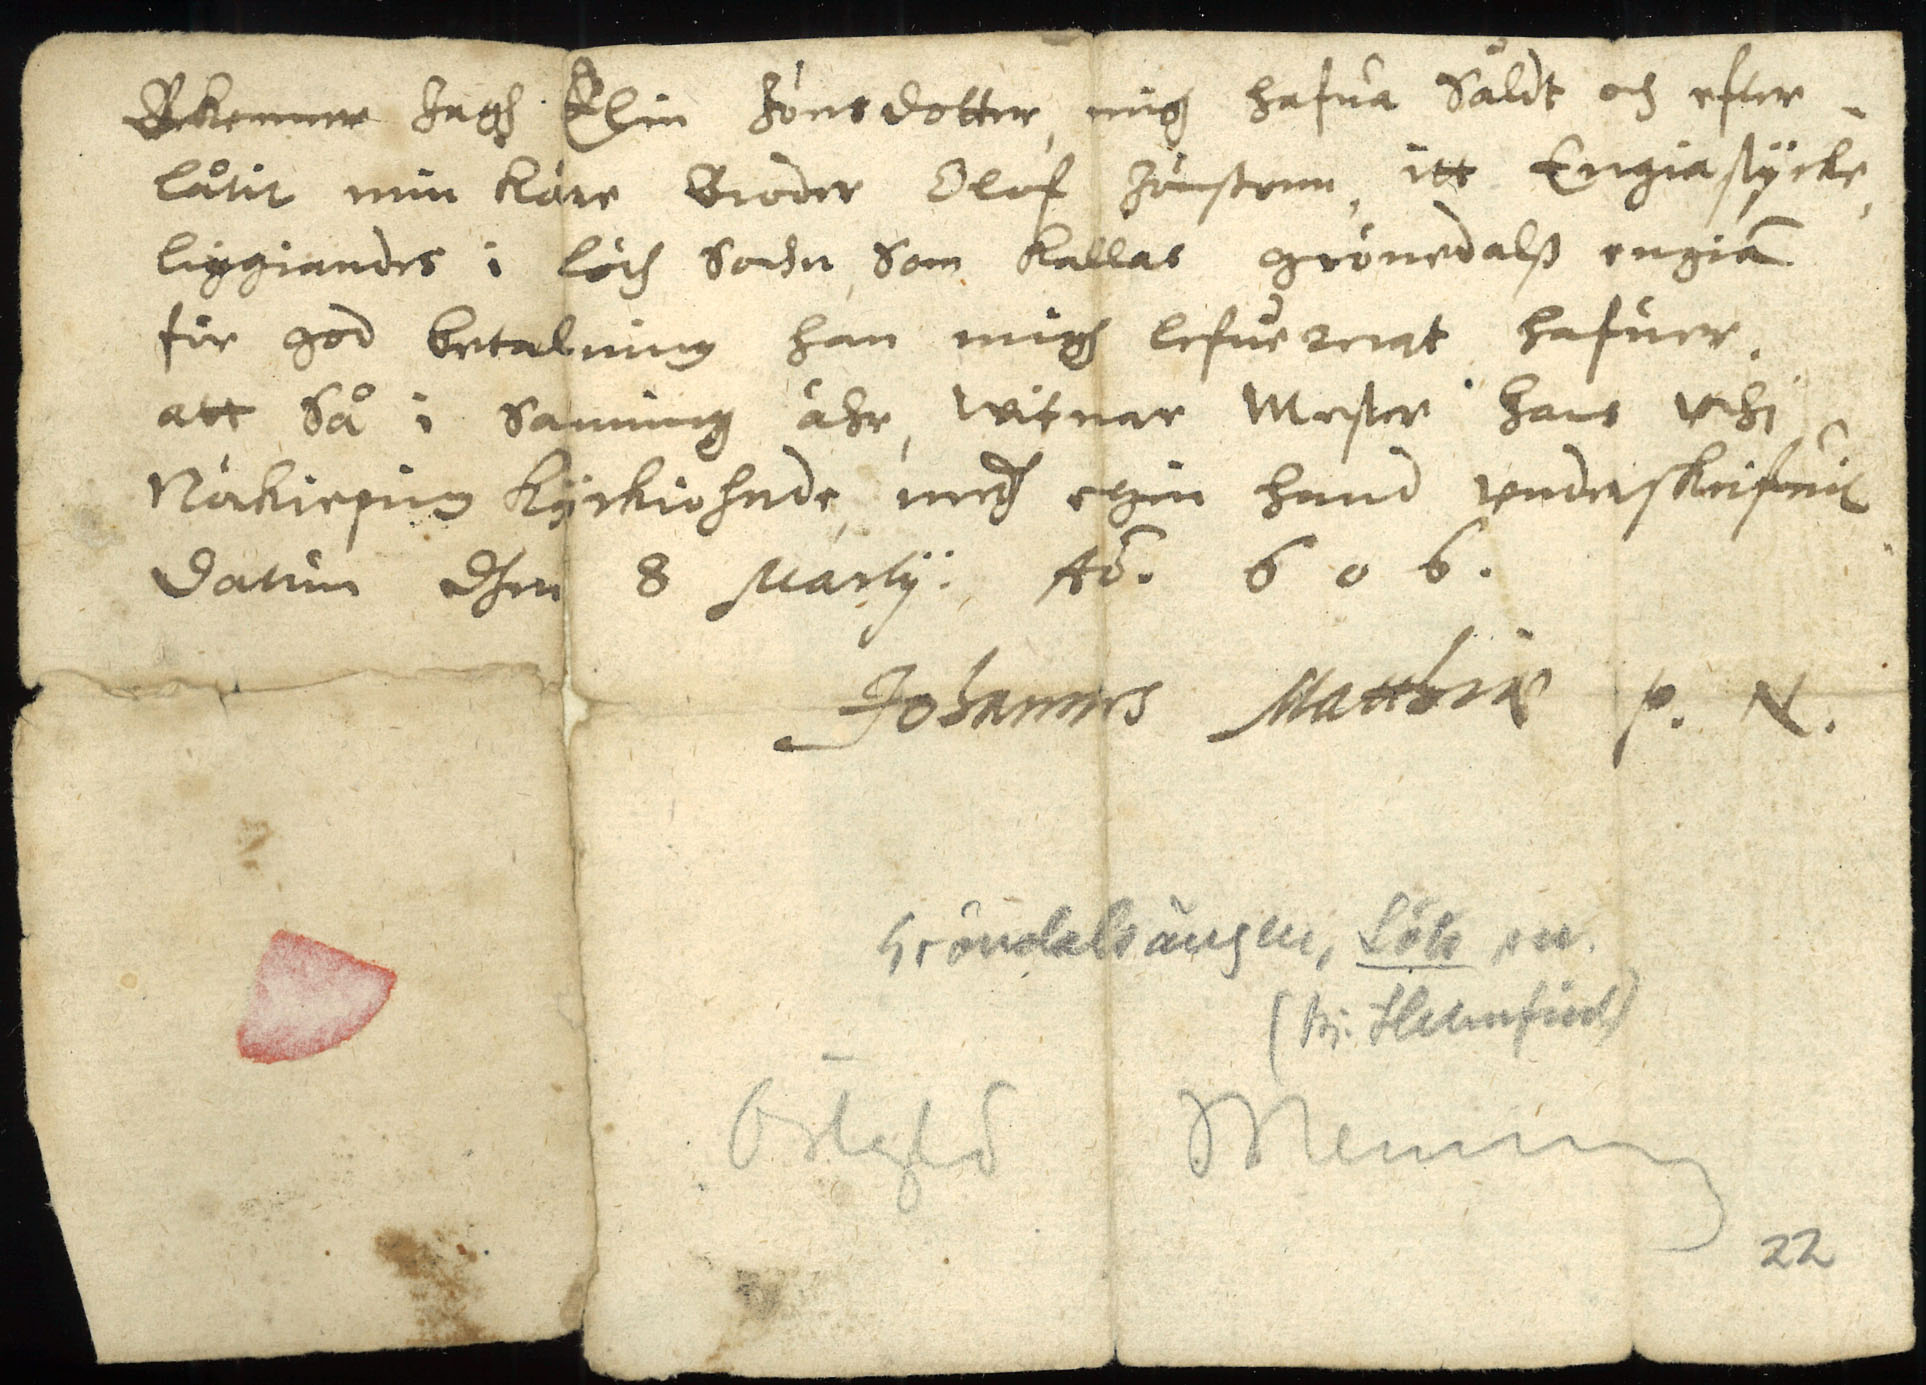 Bekenner Jagh Elin Jönsdotter, migh hafua Såldt och efter-
låtit min käre Broder Oluf Jönssonn, itt Engiastycke,
liggiandes i löth Sochn, Som kallas grönedalß engian
för god betalning han migh lefuererat hafuer.
att Så i Sanning ähr, witnar Mester Hans vthi
Nörkieping Kyrkioherde, medh eghin hand vnderskrifuit
Datum dhen 8 Martij. Aõ. 606.
Johannes Matthiæ p. N.
Gröndalsängen, Löts sn.
Östgld Memming
22